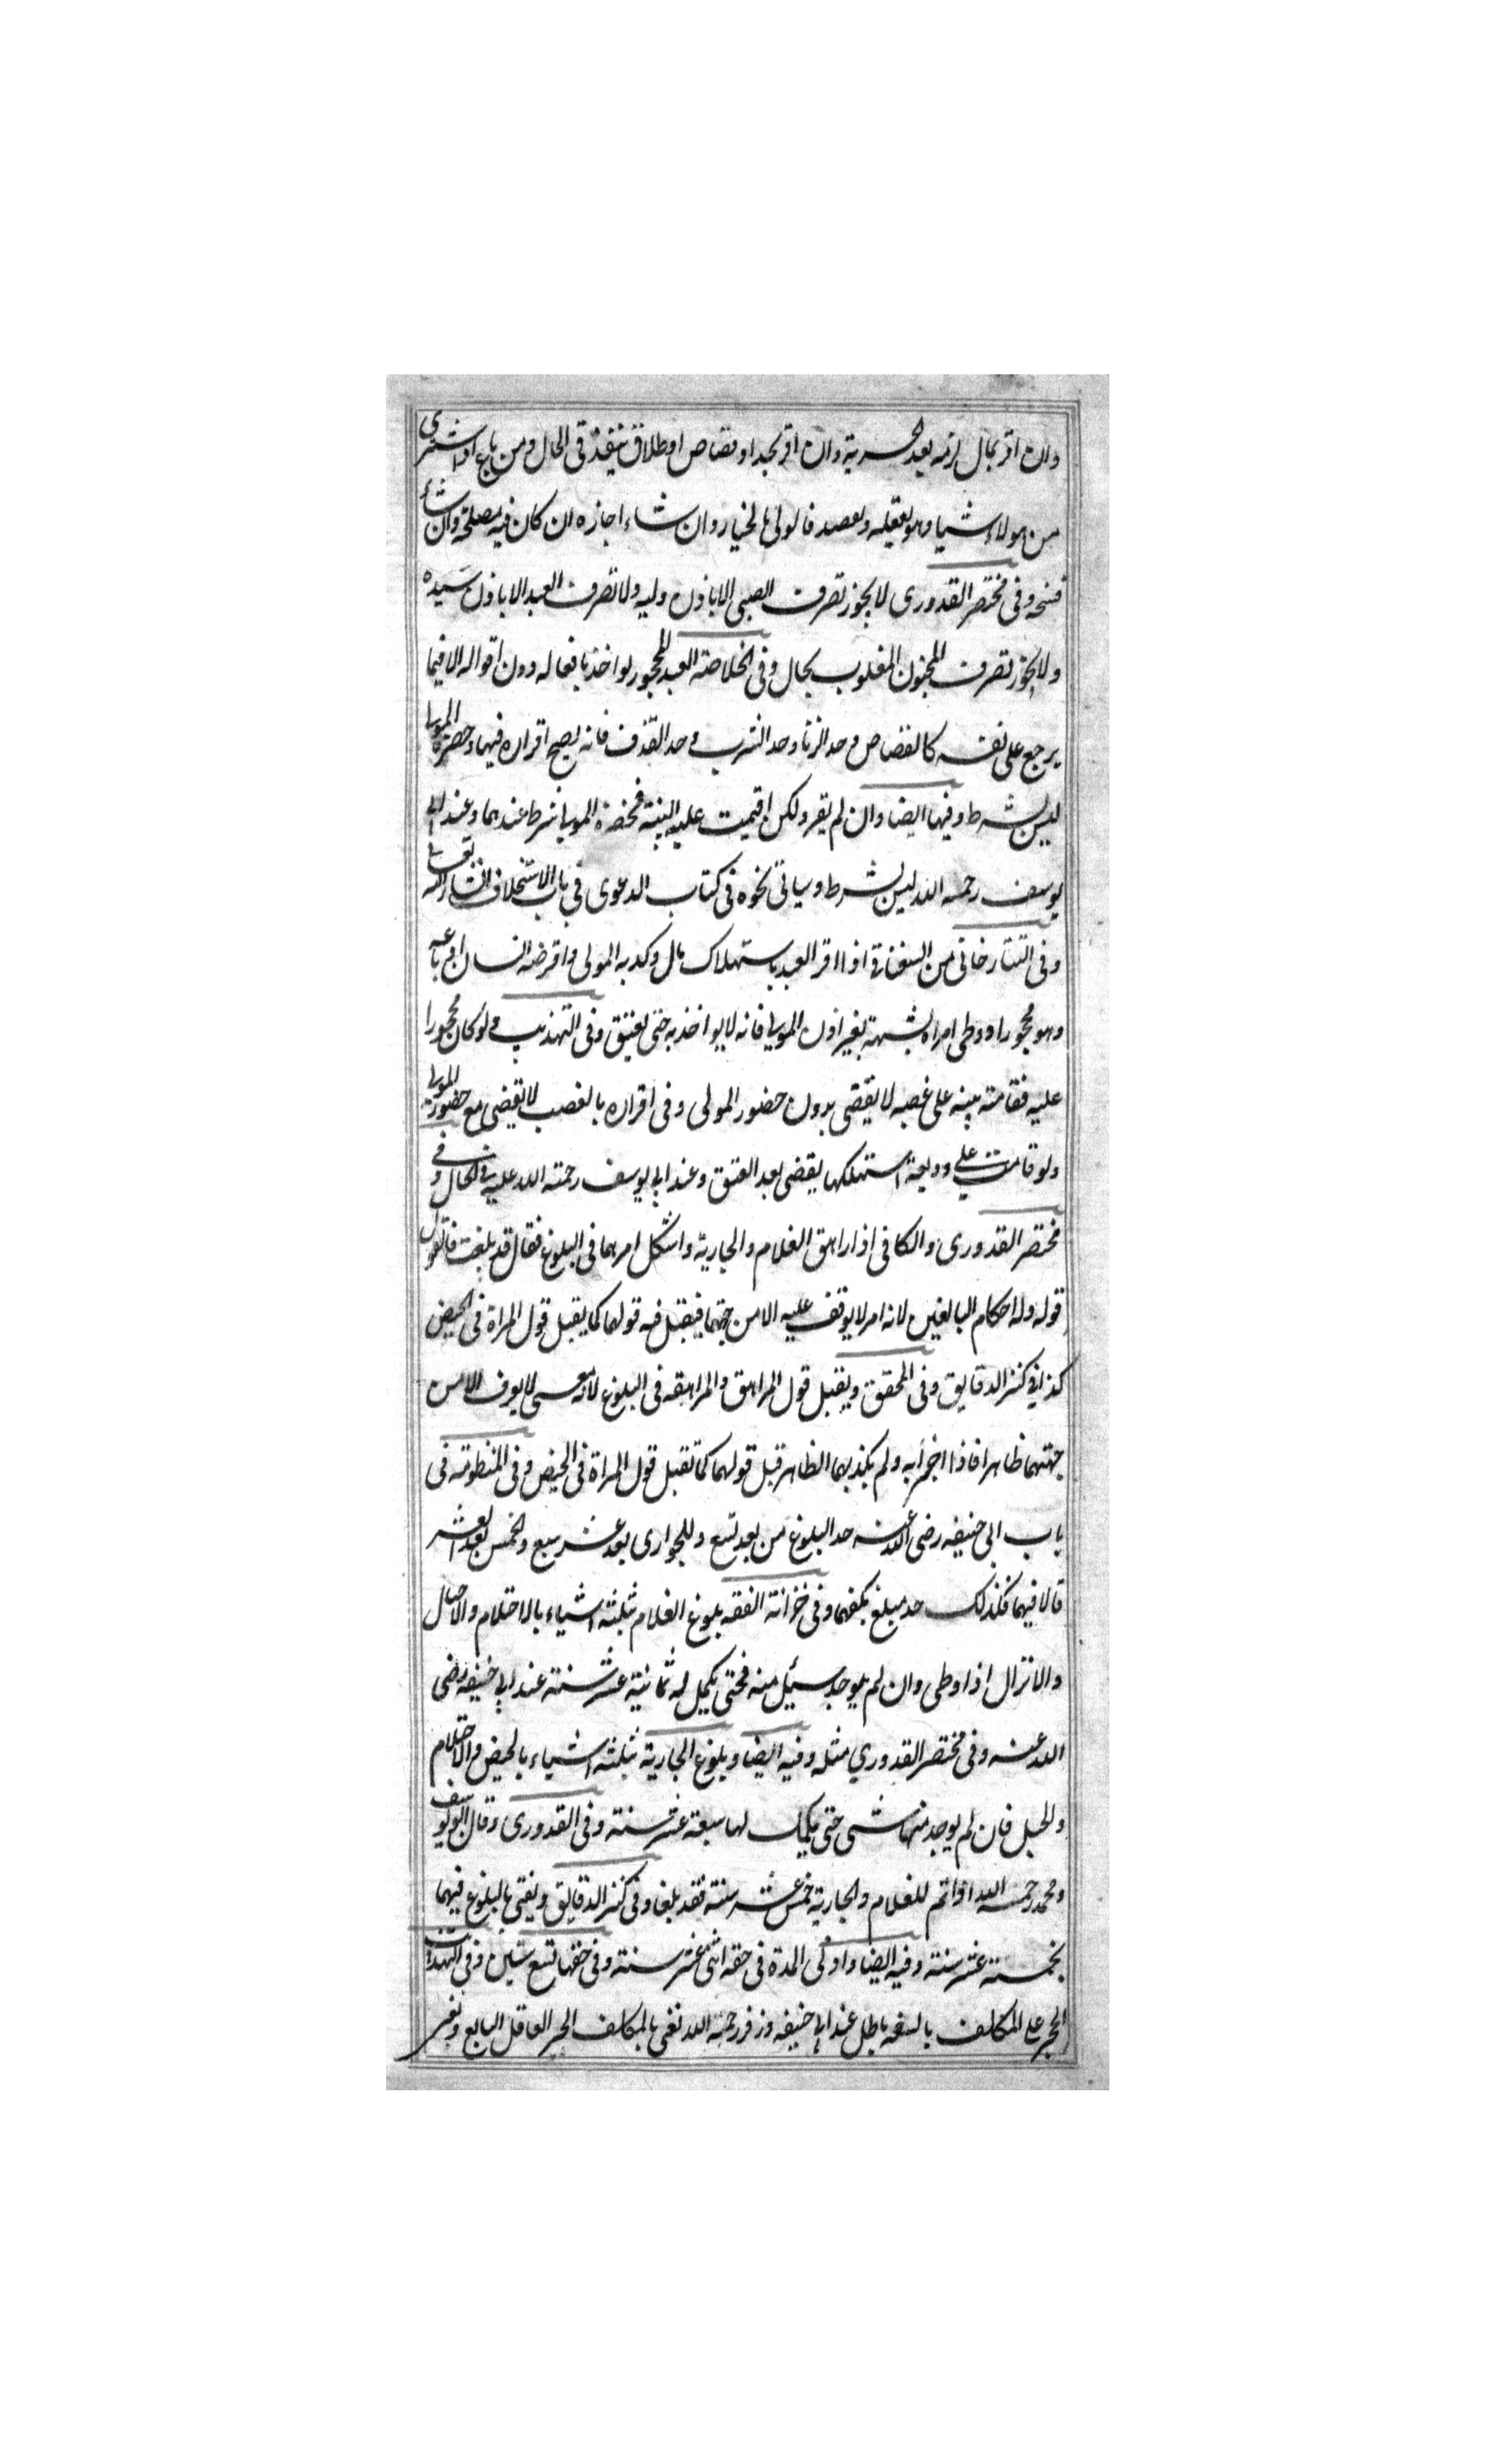 وان اقر بمال لزمه بعد الحرية وان اقر بحد او قصاص او طلاق ينفذ فى الحال ومن باع او اشترى
من هولاء شيا وهو يعقله ويقصده فالولى بالخيار وان شاء اجازه ان كان فيه مصلحة وان شاء
فسخه وفى مختصر القدورى لا يجوز تصرف الصبى الا باذن وليه ولا تصرف العبد الا باذن سيده
ولا يجوز تصرف المجنون المغلوب بحال وفى الخلاصة العبد المحجور يواخذ بافعاله دون اقواله الا فيما
يرجع على نفسه كالقصاص وحد الزنا وحد الشرب وحد القذف فانه يصح اقراره فيها وحضرة المولى
ليس بشرط وفيها ايضا وان لم يقر ولكن اقيمت عليه البينة فحضرة المولى شرط عندهما وعند ابى
يوسف رحمه الله ليس بشرط وسياتى نحوه فى كتاب الدعوى فى باب الاستحلاف ان شاء الله تعالى
وفى التتارخانى من السغناقى اذا اقر العبد باستهلاك مال وكذبه المولى او اقرضه انسان او باعه
وهو محجور او وطى امراة بشبهة بغير اذن المولى فانه لا يواخذ به حتى يعتق وفى التهذيب ولو كان محجورا
عليه فقامت بينة على غصبه لا يقضى بدون حضور المولى وفى اقراره بالغصب لا يقضى مع حضور المولى
ولو قامت على وديعة استهلكها يقضى بعد العتق وعند ابى يوسف رحمة الله عليه فى الحال وفى
مختصر القدورى والكافى اذا راهق الغلام والجارية واشكل امرهما فى البلوغ فقال قد بلغت فالقول
قوله وله احكام البالغين لانه امر لا يوقف عليه الا من جهتهما فيقبل فيه قولهما كما يقبل قول المراة فى الحيض
كذا فى كنز الدقايق وفى المحقق ويقبل قول المراهق والمراهقه فى البلوغ لانه معنى لا يعرف الا من
جهتهما ظاهرا فاذا اخبرا به ولم يكذبهما الظاهر قبل قولهما كما تقبل قول المراة فى الحيض وفى المنظومة فى
باب ابى حنيفه رضى الله عنه حد البلوغ من بعد تسع وللجوارى بعد عشر سبع والخمس بعد العشر
قالا فيهما فكذلك حد مبلغ يكفيهما وفى خزانة الفقه بلوغ الغلام بثلثة اشياء بالاحتلام والاحبال
والانزال اذا وطى وان لم يوجد شىء منه فحتى يكمل له ثمانية عشر سنة عند ابى حنيفه رضى
الله عنه وفى مختصر القدورى مثله وفيه ايضا وبلوغ الجارية بثلثة اشياء بالحيض والاحتلام
والحبل فان لم يوجد منها شى حتى يكمل لها سبعة عشر سنة وفى القدورى وقال ابو يوسف
ومحمد رحمهما الله اذا تم للغلام والجارية خمس عشر سنة فقد بلغا وفى كنز الدقايق ويفتى بالبلوغ فيهما
بخمسة عشر سنة وفيه ايضا وادنى المدة فى حقه اثنى عشر سنة وفى حقها تسع سنين وفى التهذيب
الحجر على المكلف بالسفه باطل عند ابى حنيفه وزفر رحمهما الله نعنى بالمكلف الحر العاقل البالغ